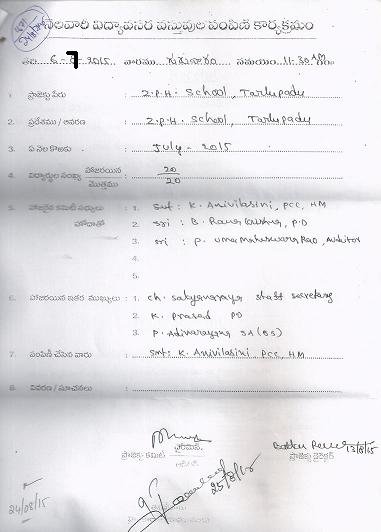 నెలవారీ విద్యావసర వస్తువుల పంపిణీ కార్యక్రమం
తేది 6-7-2015, వారము గురువారం సమయం 11:30 AM
1. ప్రాజెక్టు పేరు : Z.P.H. School, Tarlupadu
2. ప్రదేశము / ఆవరణ : Z.P.H. School, Tarlupadu
3. ఏ నెల కొఱకు : July - 2015
4. విద్యార్థుల సంఖ్య హాజరయిన / మొత్తము : 20/20
5. హాజరైన కమిటీ సభ్యులు : 1. Smt: K. Anivilasini, PCC, HM
హోదాతో 2. Sri : B. P.D
3. Sri : P. Uma Maheswara Rao, Auditor
4.
5.
6. హాజరయిన ఇతర ముఖ్యులు : 1. Ch. Satyanaraya Staff Secretary
2. K. Prasad PD
3. P. Adinarayana SA (SS)
7. పంపిణీ చేసిన వారు : Smt: K. Anivilasini PCC, HM
8. వివరణ / సూచనలు :
ప్రాజెక్టు కమిటీ ఛైర్మెన్
13/8/15
ప్రాజెక్టు డైరెక్టర్
24/08/15
25/8/15